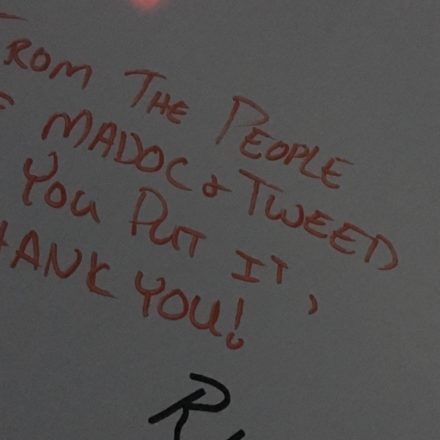 FROM THE PEOPLE
OF MADOC & TWEED
YOU PUT IT,
THANK YOU!